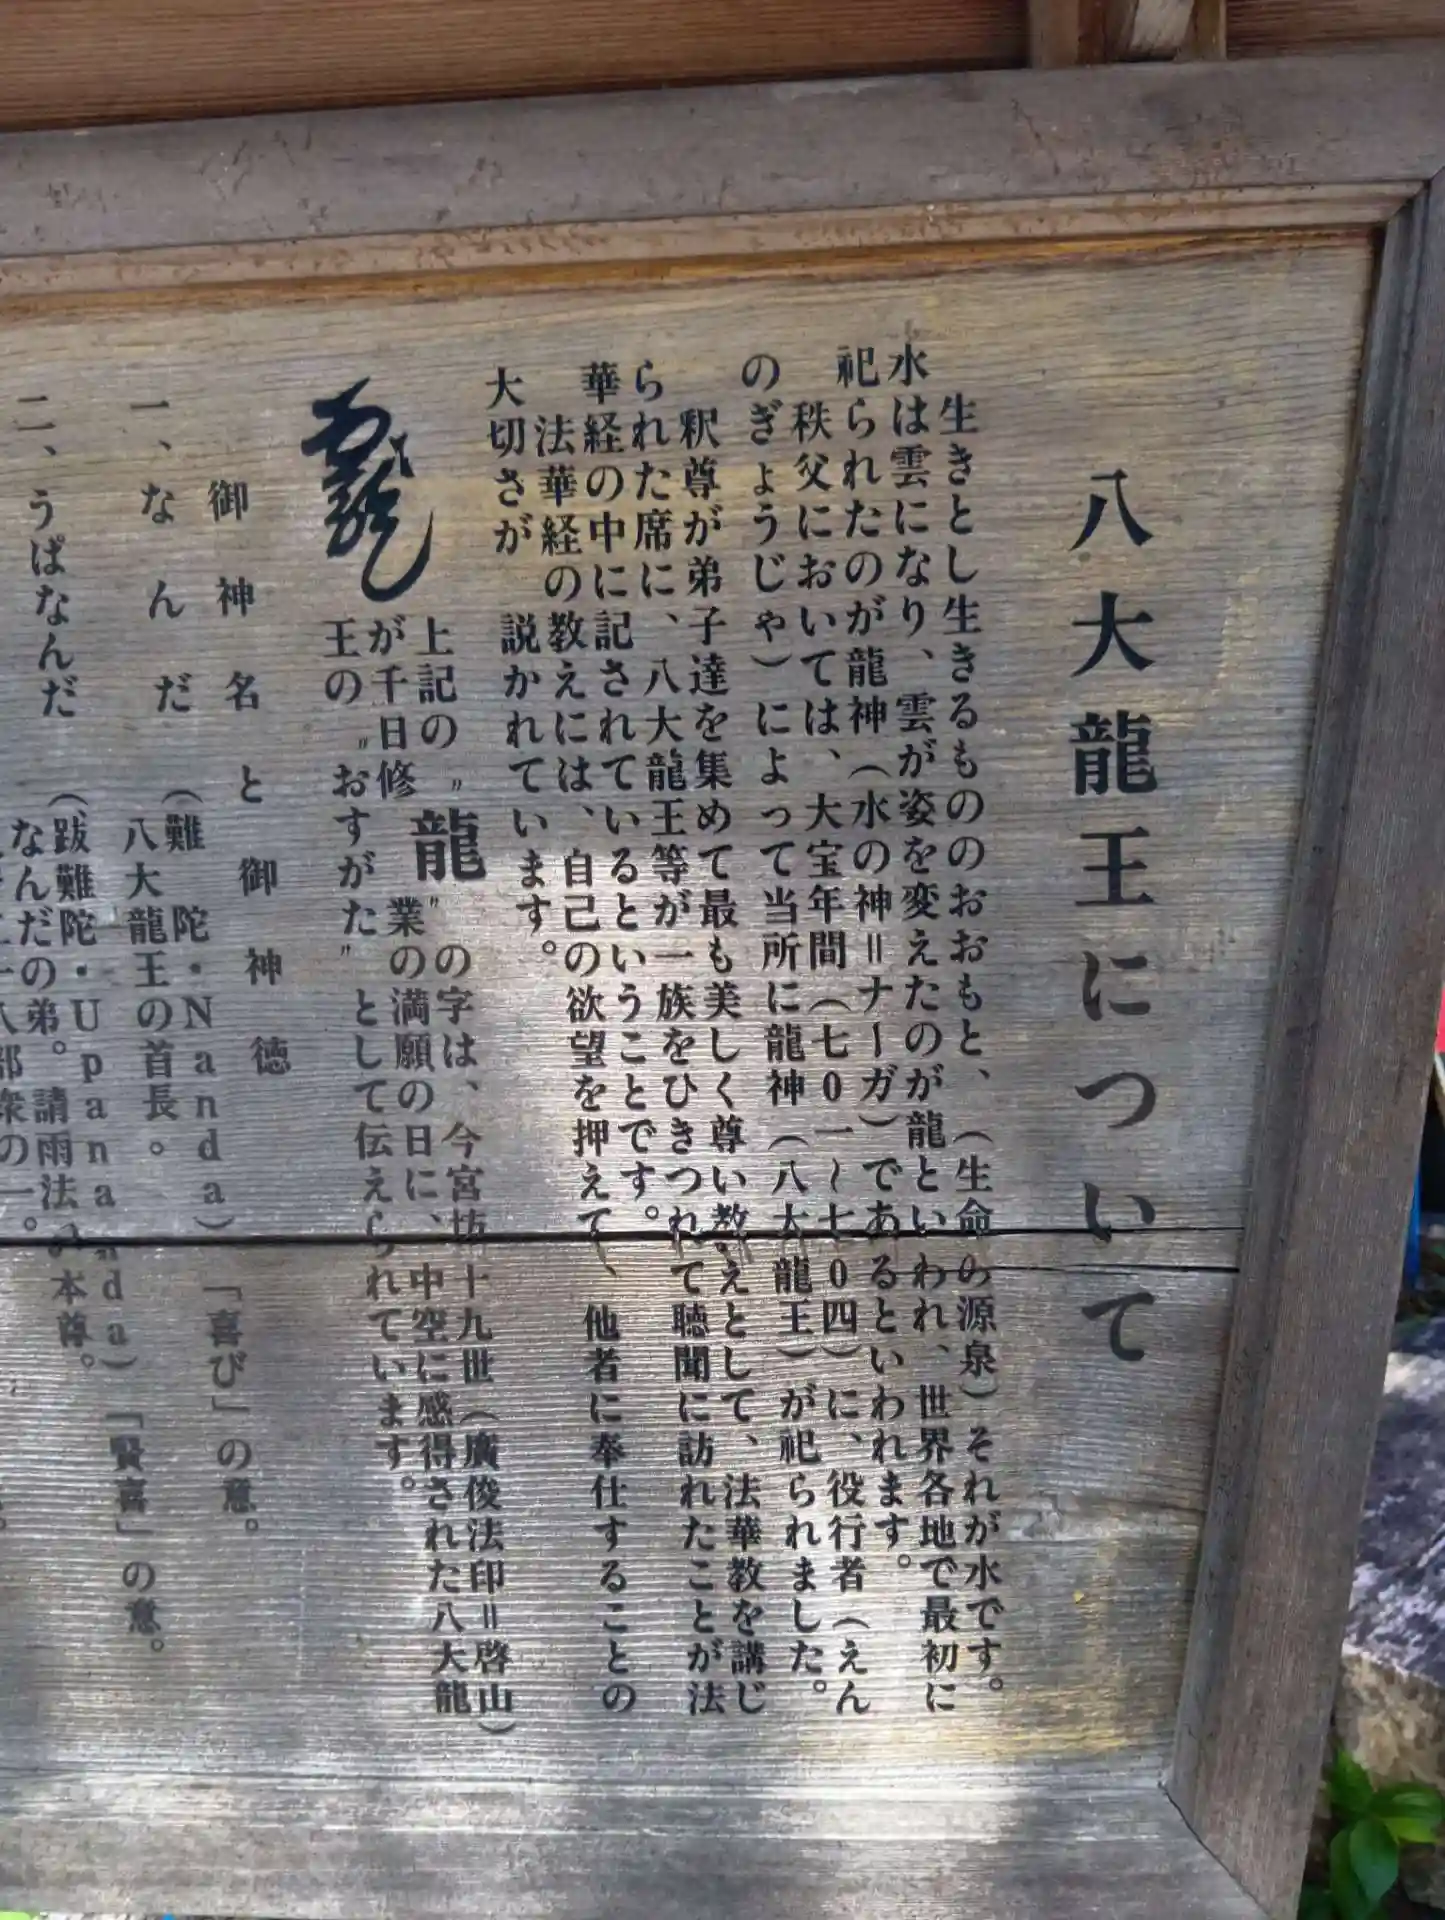 八大龍王について
生きとし生きるもののおおもと、（生命の源泉）それが水です。
水は雲になり、雲が姿を変えたのが龍といわれ、世界各地で最初に
祀られたのが龍神（水の神＝ナーガ）であるといわれます。
秩父においては、大宝年間（七０一～七０四）に、役行者（えん
のぎょうじゃ）によって当所に龍神（八大龍王）が祀られました。
釈尊が弟子達を集めて最も美しく尊い教えとして、法華教を講じ
られた席に、八大龍王等が一族をひきつれて聴聞に訪れたことが法
華経の中に記されているということです。
法華経の教えには、自己の欲望を押えて、他者に奉仕することの
大切さが説かれています。
上記の〝龍〟の字は、今宮坊十九世（廣俊法印＝啓山）
が千日修業の満願の日に、中空に感得された八大龍
王の〝おすがた〟として伝えられています。
御神名と御神徳
一、なんだ（難陀・Nanda）「喜び」の意。
八大龍王の首長。
二、うぱなんだ（跋難陀・Upananda）「賢喜」の意。
なんだの弟。請雨法の本尊。